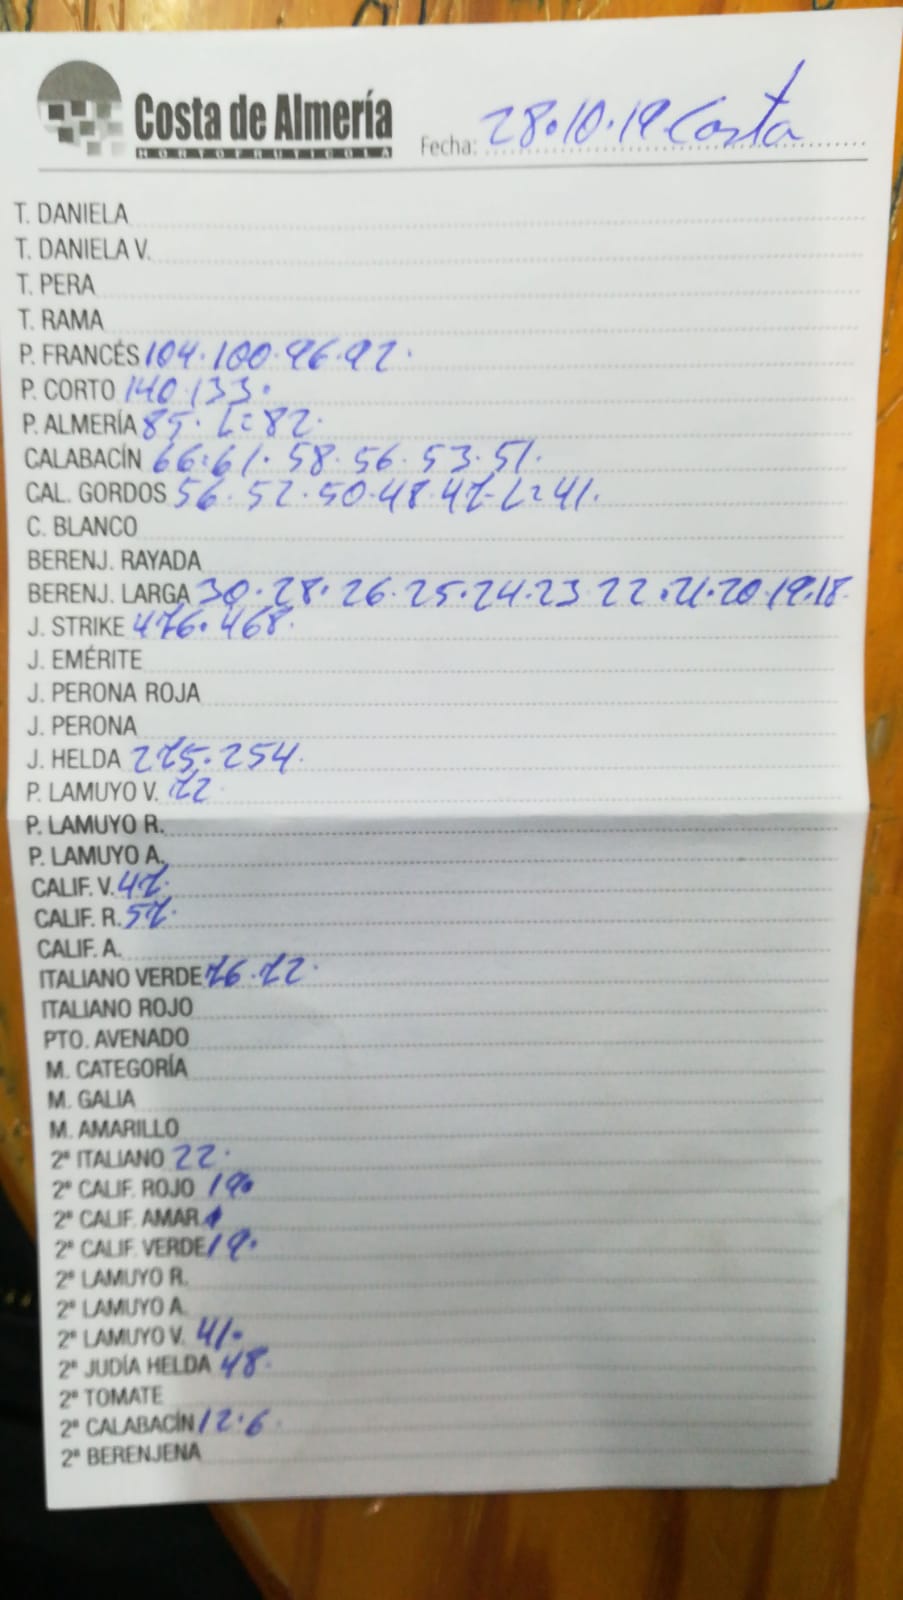 Costa de Almería
HORTOFRUTICOLA
Fecha: 28.10.19 Costa
T. DANIELA
T. DANIELA V.
T. PERA
T. RAMA
P. FRANCÉS 104.100.96.92.
P. CORTO 140.133.
P. ALMERÍA 85. L=82.
CALABACÍN 66.61.58.56.53.51.
CAL. GORDOS 56.52.50.48.47-L=41.
C. BLANCO
BERENJ. RAYADA
BERENJ. LARGA 30.28.26.25.24.23.22.21.20.19.18.
J. STRIKE 476.468.
J. EMÉRITE
J. PERONA ROJA
J. PERONA
J. HELDA 275.254.
P. LAMUYO V. 72.
P. LAMUYO R.
P. LAMUYO A.
CALIF. V. 47.
CALIF. R. 57.
CALIF. A.
ITALIANO VERDE 76.72.
ITALIANO ROJO
PTO. AVENADO
M. CATEGORÍA
M. GALIA
M. AMARILLO
2ª ITALIANO 22.
2ª CALIF. ROJO 19.
2ª CALIF. AMAR.
2ª CALIF. VERDE 19.
2ª LAMUYO R.
2ª LAMUYO A.
2ª LAMUYO V. 41.
2ª JUDÍA HELDA 48.
2ª TOMATE
2ª CALABACÍN 12.6.
2ª BERENJENA